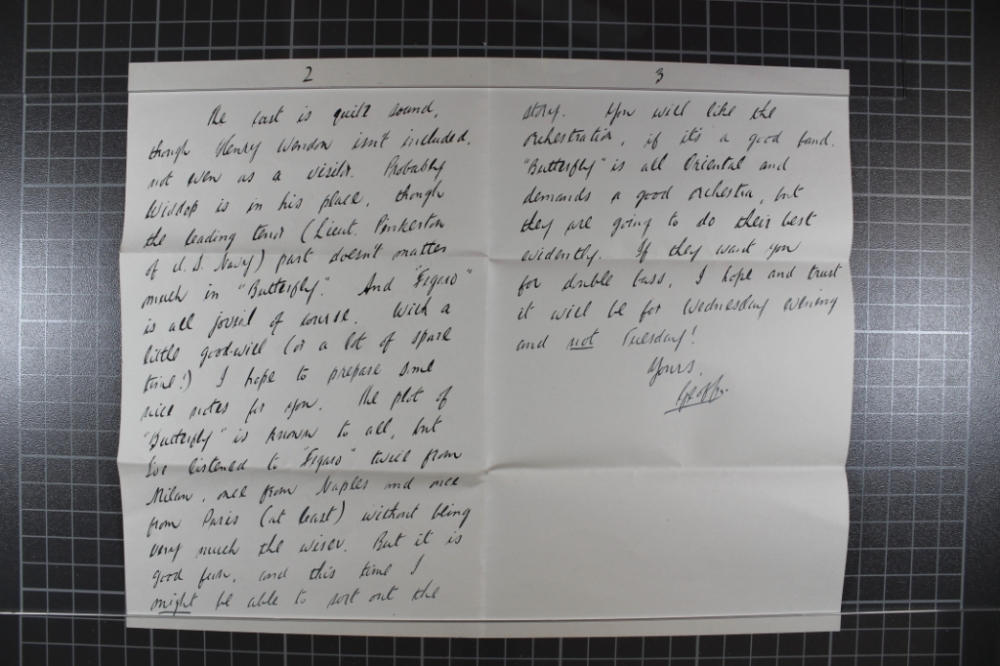 2
The cast is quite sound,
though Henry Wendon isn't included,
not even as a visitor. Probably
Widdop is in his place, though
the leading tenor (Lieut. Pinkerton
of U.S. Navy) part doesn't matter
much in "Butterfly". And "Figaro"
is all jovial of course. With a
little good-will (or a lot of spare
time!) I hope to prepare some
nice notes for you. The plot of
"Butterfly" is known to all, but
I've listened to "Figaro" twice from
Milan, once from Naples and once
from Paris (at least) without being
very much the wiser. But it is
good fun, and this time I
might be able to sort out the
3
story. You will like the
orchestration, if it's a good band.
"Butterfly" is all Oriental and
demands a good orchestra, but
they are going to do their best
evidently. If they want you
for double bass, I hope and trust
it will be for Wednesday evening
and not Tuesday!
Yours,
Geoff.